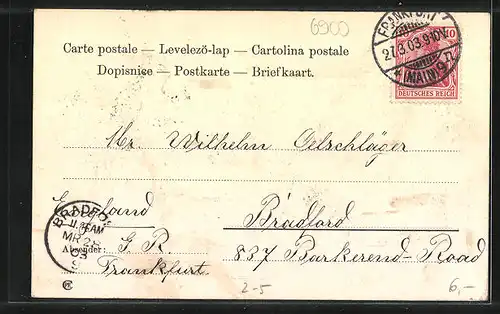 6900
Carte postale — Levelező-lap — Cartolina postale
Dopisnice — Postkarte — Briefkaart.
FRANKFURT
27.3.03.9-10V.
* (MAIN) 9
10
DEUTSCHES REICH
Mr. Wilhelm Oelschläger
England Bradford
BRADFORD
11.15AM
MR 28
03
Absender: G. R. 837 Barkerend-Road
Frankfurt.
2-5 6,-